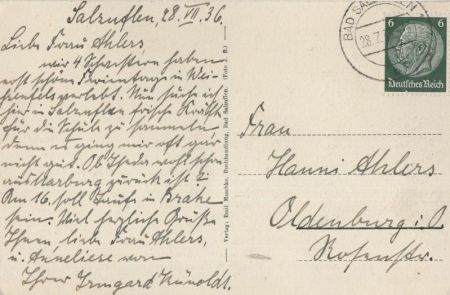 Salzuflen, 28. VII. 36.
Liebe Frau Ahlers,
wir 4 Schwestern haben
erst schön Ferientage in Wei-
ßenfels verlebt. Nun suche ich
hier in Salzuflen frische Kräfte
für die Schule zu sammeln
denn es ging mir oft gar
nicht gut. Ob Theda wohl schon
aus Marburg zurück ist?
Am 16. soll Taufe in Brake
sein. Viel herzliche Grüße
Ihnen, liebe Frau Ahlers,
u. Anneliese von
Ihrer Irmgard
Verlag: Emil Buchhandlung, Bad Salzuflen. (Foto J. B.)
BAD SALZUFLEN
28.7.
6 6
Deutsches Reich
Frau
Hanni Ahlers
Oldenburg i. O
Rosenstr.